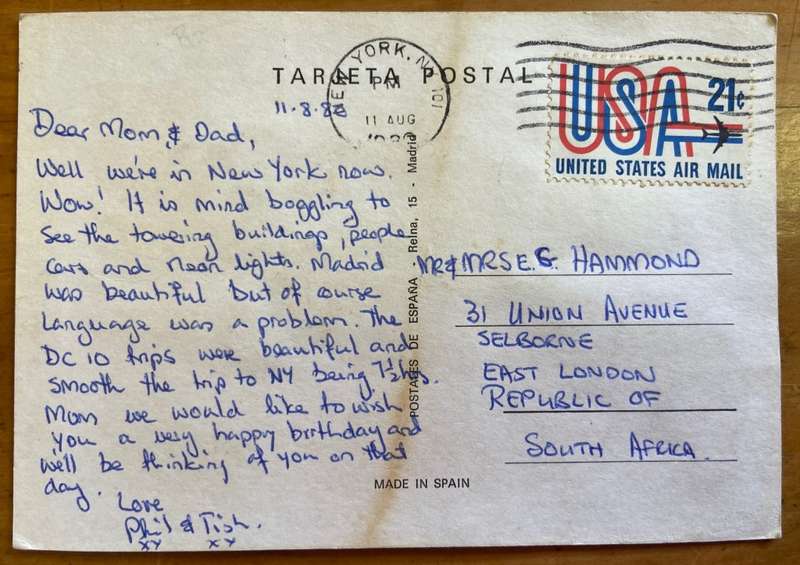 TARJETA POSTAL
NEW YORK, N.
PM
11 AUG
USA 21¢
UNITED STATES AIR MAIL
11.8.82
Dear Mom, & Dad,
Well we're in New York now.
Wow! It is mind boggling to
see the towering buildings, people
cars and neon lights. Madrid
was beautiful but of course
language was a problem. The
DC 10 trips were beautiful and
smooth the trip to NY being 7½ hrs.
Mom we would like to wish
you a very happy birthday and
we'll be thinking of you on that
day. Love
Phil & Tish.
xx xx
POSTALES DE ESPAÑA - Reina, 15 - Madrid
MR & MRS E.G. HAMMOND
31 UNION AVENUE
SELBORNE
EAST LONDON
REPUBLIC OF
SOUTH AFRICA.
MADE IN SPAIN